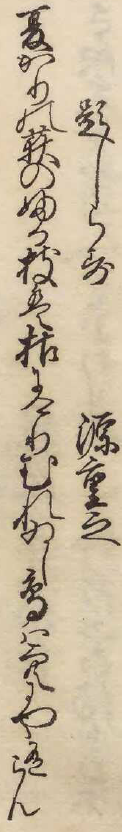 題しらす　源重之
夏かりの荻のふる枝は枯にけりむれゐし鳥は空にやあるらん